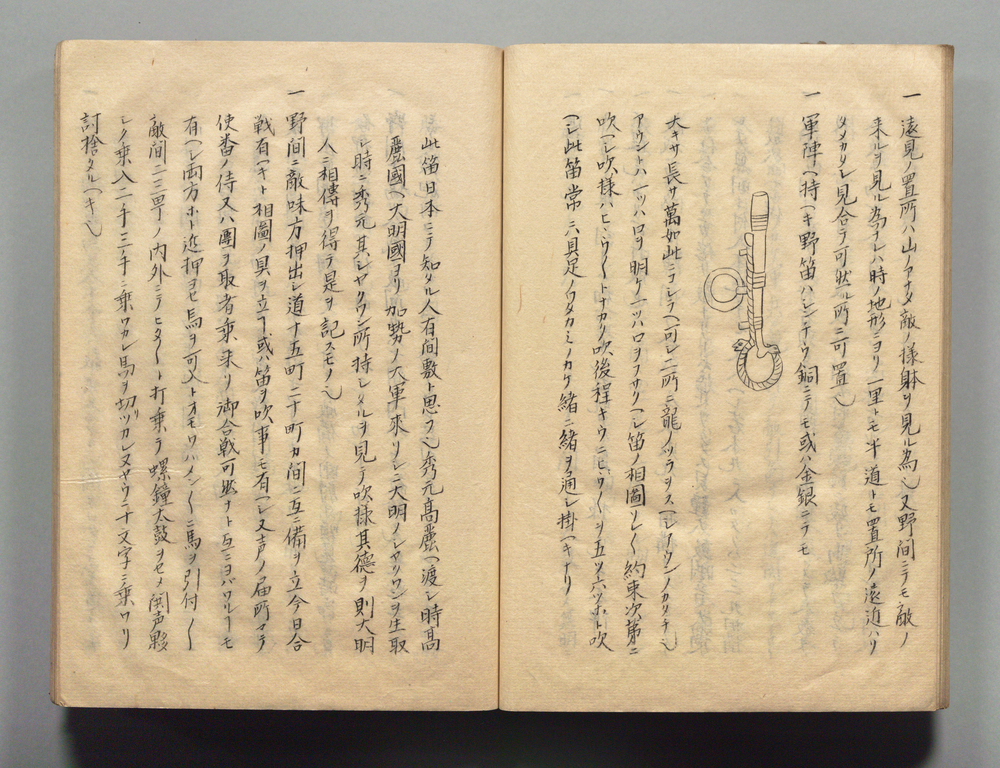 一 遠見ノ置所ハ山ノアナタ敵ノ様躰ヲ見ル為也又野間ニテモ敵ノ
来ルヲ見ル為ナレハ時ノ地形ニヨリ一里トモ半道トモ置所ノ遠近ハ
見合テ可然ル所ニ可置也
一 軍陣ヘ持ヘキ野笛ハシンチウ銅ニテモ或ハ金銀ニテモ
大キサ長サ萬如此ニコシラヘ可シ二所ニ龍ノツラヲスヘシ
アウント一ツハ口ヲ明ケ一ツハ口ヲフサクヘシ笛ノ相圖 約束次第ニ
吹ヘシ吹様ハ 吹後程 五ツ六ツホト吹
ヘシ此笛常ニ具足ノ ノカケ緒ニ緒ヲ通シ掛ヘキナリ
此笛日本ニテ知タル人有間敷ト思フ也秀元高麗ヘ渡シ時高
麗國ヘ大明國ヨリ加勢ノ大軍来リシニ大明ノシヤクワンヲ生取
シ時ニ秀元其シヤクワン所持シタルヲ見テ吹様其徳ヲ則大明
人ニ相傳ヲ得テ是ヲ記スモノ也
一 野間ニ敵味方押出シ道十五町二十町カ間ニ互ニ備ヲ立今日合
戦有ヘキト相圖ノ具ヲ立テ或ハ笛ヲ吹事モ有ヘシ又声ノ届所マテ
使番ノ侍又ハ團ヲ取者乗来リ御合戦可然ナト互ニヨハワル モ
有ヘシ両方ホト近押ヨセ馬ヲ可入トオモワハ ニ馬ヲ引付
敵間二三間ノ内外ニテヒタ〱ト打乗テ螺鐘太鼓ヲセメ鬨声
シノ乗入二千三千ニ乗ワカレ馬ヲ切ツカレ又ヤウニ十文字ニ乗ワリ
討捨タルヘキ也